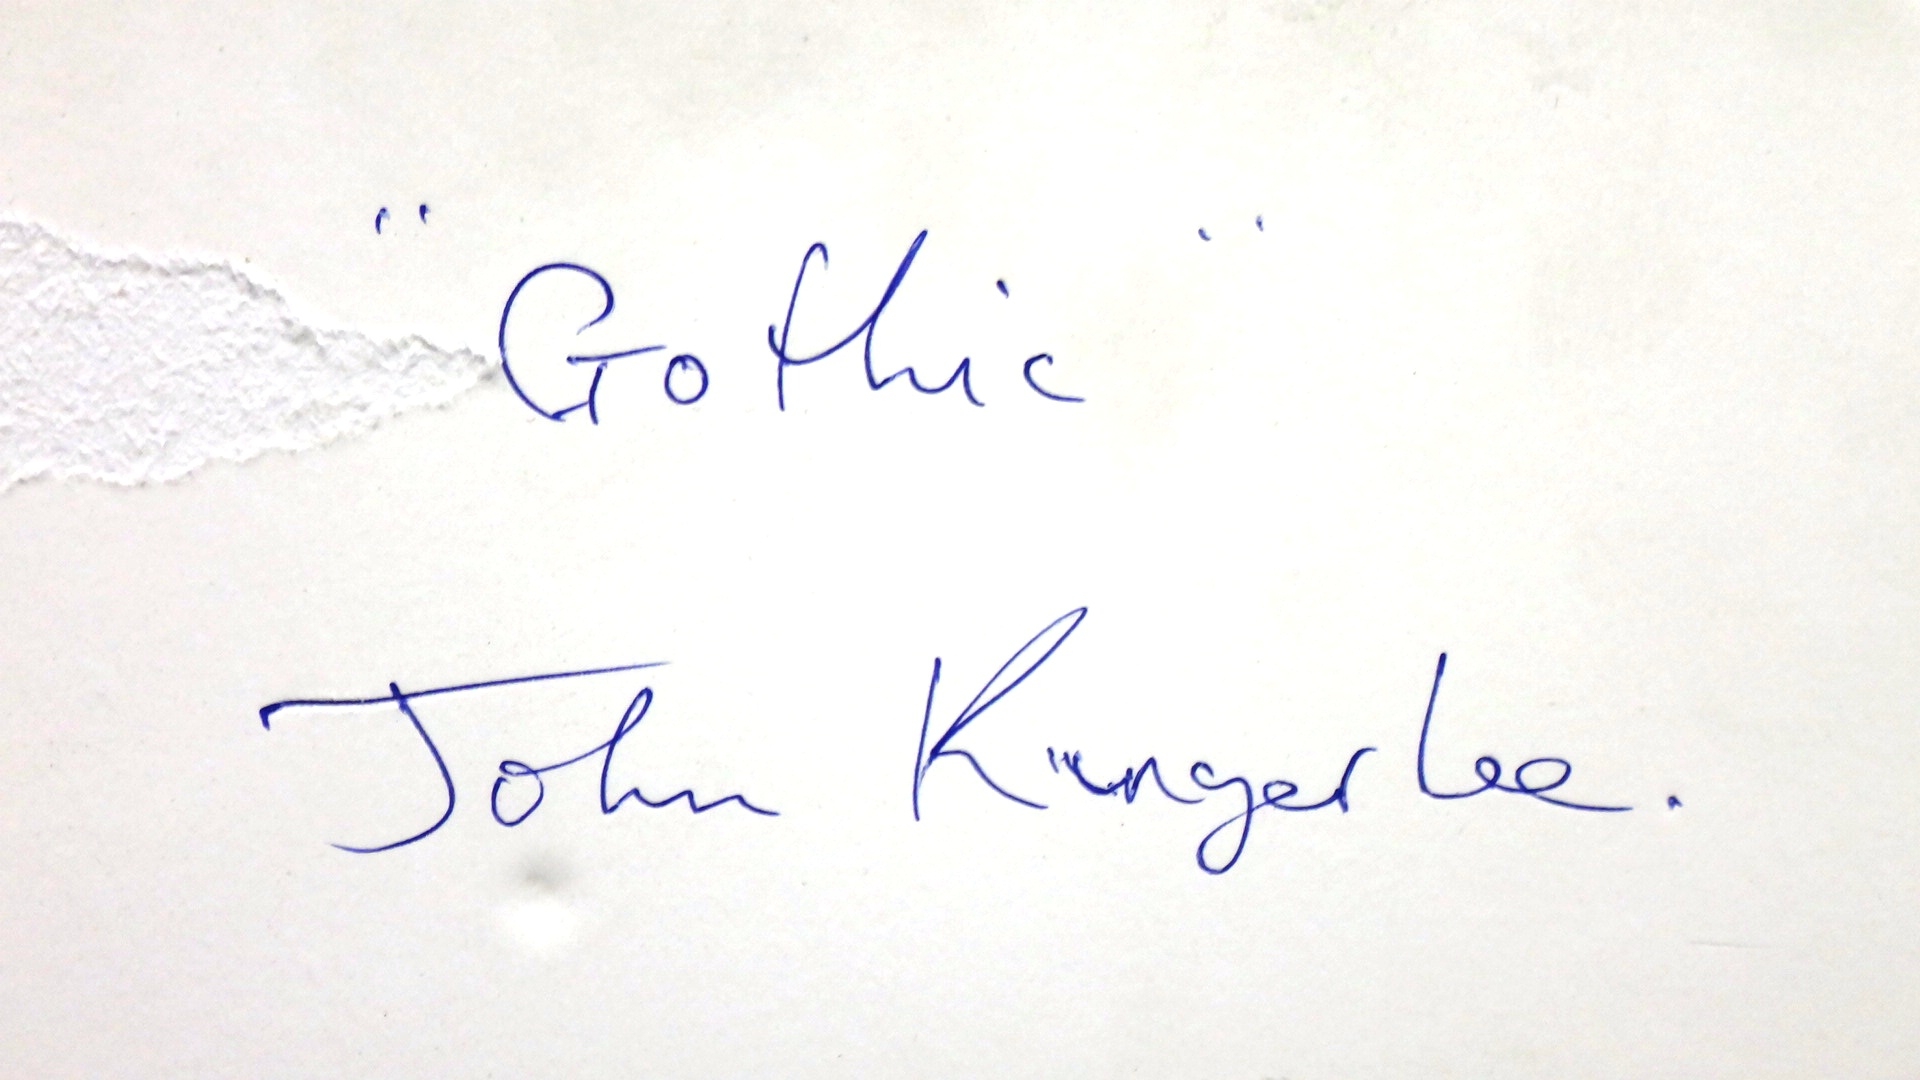 "Gothic"
John Kingerlee.